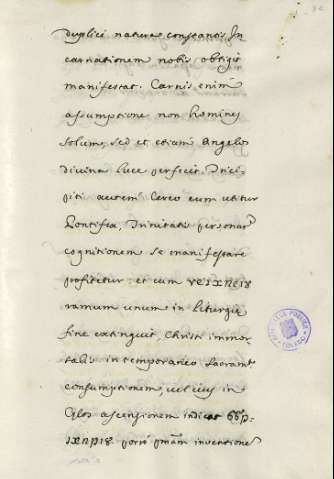 duplici natura constantis In
carnationem nobis obtigit
manifestat. Carnis enim
assumptione non homines
solum, sed et etiam Angelos
divina luce perfecit. Trici-
piti autem Cereo cum utitur
Pontifex, Trinitatis personarũ
cognitionem se manifestare
profitetur: et cum
ramum unum in Liturgiæ
fine extinguit, Christi immor-
talis in temporaneo Sacramti
consumptionem, vel eius in
Cælos ascensionem indicat
porro inventione